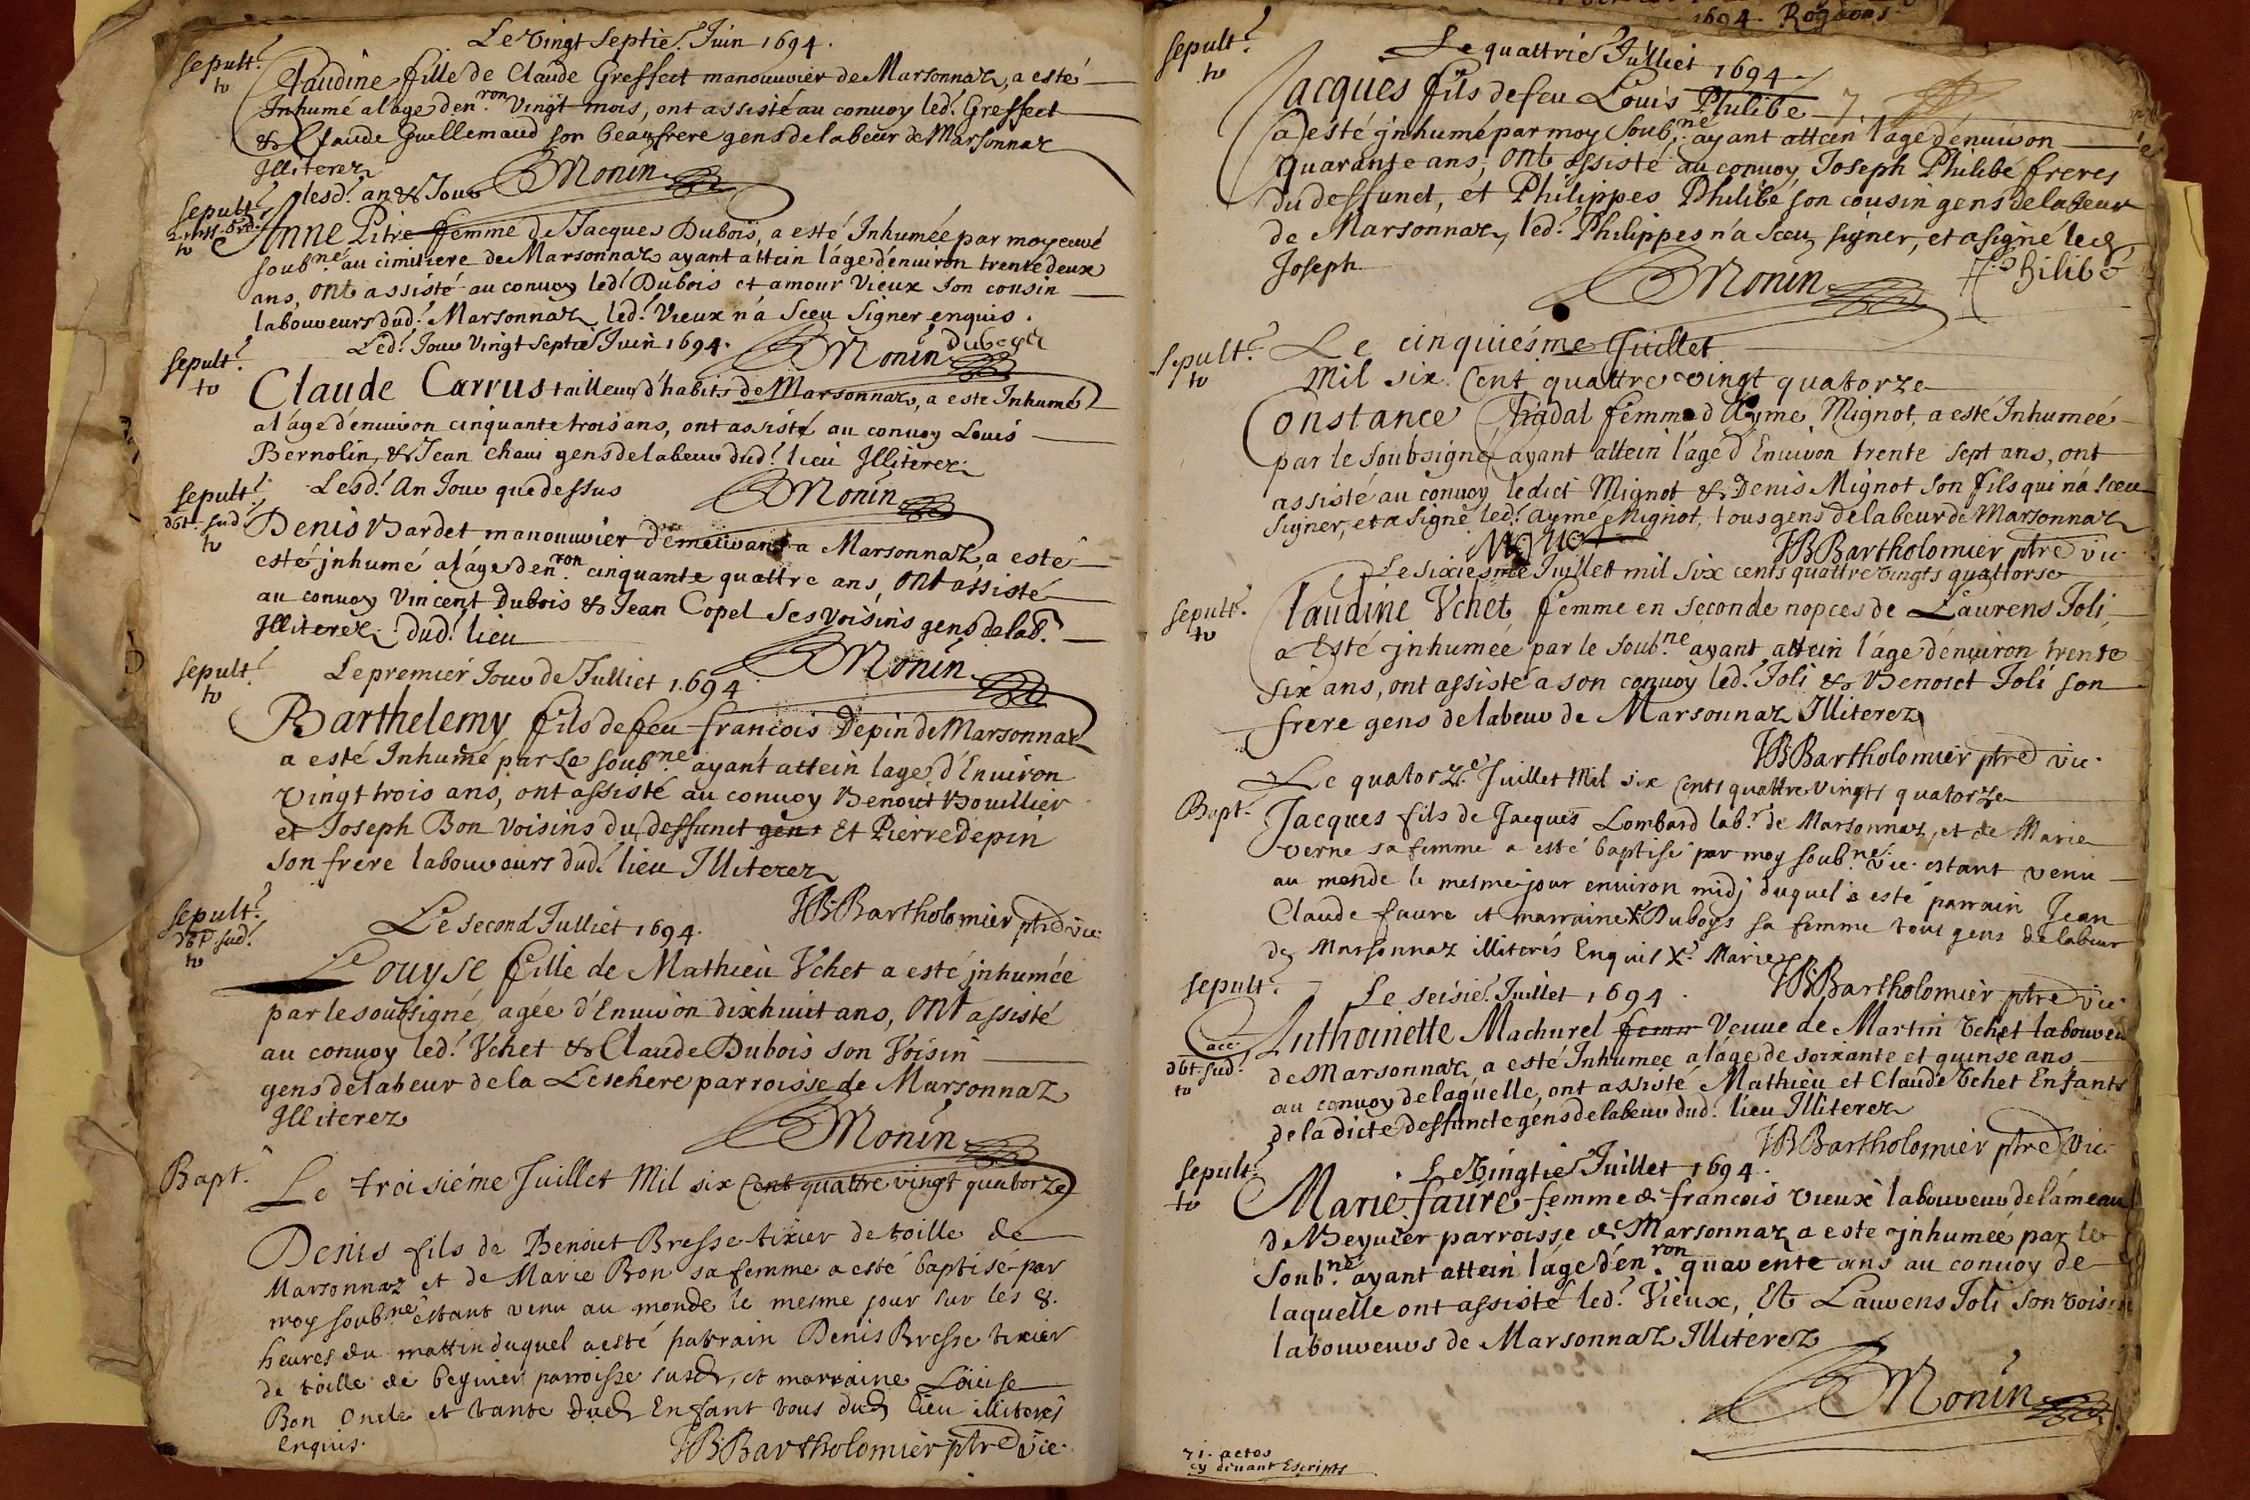 Le vingt septie.^ Juin 1694.
sepult.^e
to
Claudine fille de Claude Greffect manouuvier de Marsonnaz, a esté
Inhumé a láge d'en.^ron vingt mois, ont assisté au conuoy led.^t Greffect
& Claude Guillemaud son beaufrere gens de labeur de Marsonnaz
Illiterez
Monin
lesd.^t an & Jour
sepult.^e
to
Anne Pitre femme de Jacques Dubois, a esté Inhumée par moy curé
soub.^né au cimitiere de Marsonnaz ayant attein láge dénuiron trente deux
ans, ont assisté au conuoy led.^t Dubois et amour Vieux son cousin
laboureurs dud.^t Marsonnaz led.^t Vieux n'a sceu signer enquis.
Led.^t Jour vingt septie.^ Juin 1694.
Monin
sepult.^e
to
Claude Carrus tailleur d'habits de Marsonnaz, a este Inhumé
a láge dénuiron cinquante trois ans, ont assisté au conuoy Louis
Bernolin, & Jean chaui gens de labeur dud.^t lieu Illiterez.
Lesd.^t An Jour que dessus
Monin
sepult.^e
dbt. sud.^t
to
Denis Bardet manouuvier demeurant a Marsonnaz, a esté
esté jnhumé a láge d'en.^ron cinquante quattre ans, ont assisté
au conuoy Vincent Dubois & Jean Copel ses voisins gens de lab.^r
Illiterez dud.^t lieu
Monin
Le premier Jour de Julliet 1694
sepult.^e
to
Barthelemy fils de feu francois Depin de Marsonnaz
a esté Inhumé par Le soub.^né ayant attein lage d'Enuiron
vingt trois ans, ont assisté au conuoy Benoit Bouillier
et Joseph Bon voisins du deffunct gens Et Pierre Depin
son frere laboureurs dud.^t lieu Illiterez
JB Bartholomier ptre vic.
sepult.^e
dbt sud.^t
to
Le second Julliet 1694.
Louyse fille de Mathieu Vchet a esté jnhumée
par le soubsigné, agée d'Enuiron dixhuict ans, ont assisté
au conuoy led.^t Vchet & Claude Dubois son Voisin
gens de labeur de la Leschere parroisse de Marsonnaz
Illiterez
Monin
Bapt.
Le troisiéme Juillet Mil six Cent quattre vingt quatorze
Denis fils de Benoict Bresse tixier de toille de
Marsonnaz et de Marie Bon sa femme a esté baptisé par
moy soub.^né estant venu au monde le mesme jour sur les 8.
heures du mattin duquel a esté parrain Denis Bresse tixier
de toille de beyuier parroisse susd, et marraine Loüise
Bon Oncle et tante dud Enfant tous dud lieu illiterés
Enquis.
JB Bartholomier ptre vic.
1694.
Le quattrie.^ Julliet 1694
sepult.^e
to
Jacques fils de feu Louis Philibé
a esté jnhumé par moy soub.^né ayant attein láge dénuiron
quarante ans, ont assisté au conuoy Joseph Philibé freres
du deffunct, et Philippes Philibé son cousin gens de labeur
de Marsonnaz, led.^t Philippes n'a sceu signer, et a signé led
Joseph
Monin
Philibé
Le cinquiésme Juillet
sepult.^e
to
Mil six Cent quattre vingt quatorze
Constance Chadal femme d'Aymé Mignot, a esté Inhumeé
par le soubsigné ayant attein l'áge d'Enuiron trente sept ans, ont
assisté au conuoy ledict Mignot & Denis Mignot son fils qui n'a sceu
signer, et a signé led.^t aymé Mignot, tous gens de labeur de Marsonnaz
JB Bartholomier ptre vic.
Le sixiesme Juillet mil six cents quattre vingts quattorse
sepult.^e
to
Claudine Vchet femme en seconde nopces de Laurens Joli,
a Esté jnhumeé par le soub.^ne ayant attein l'áge dénuiron trente
six ans, ont assisté a son conuoy led.^t Joli & Benoict Joli son
frere gens de labeur de Marsonnaz Illiterez
JB Bartholomier ptre vic.
Le quatorz.^e Juillet Mil six Cents quattre vingts quatorze
Bapt.
Jacques fils de Jacques Lombard lab.^r de Marsonnaz, et de Marie
verne sa femme a esté baptisé par moy soub.^né vic. estant venu
au monde le mesme jour environ midj duquel a esté parrain Jean
Claude faure et marraine X Duboys sa femme tous gens de labeur
de Marsonnaz illiterés Enquis X. Marie
JB Bartholomier ptre vic.
sepult.^e
Le seisie.^ Juillet 1694.
dbt. sud.^t
to
Anthoinette Machurel femme Veuue de Martin Vchet laboureur
de Marsonnaz, a esté Inhumee a láge de soixante et quinse ans
au conuoy de laquelle, ont assisté Mathieu et Claude Vchet Enfants
de la dicte deffuncte gens de labeur dud.^t lieu Illiterez
JB Bartholomier ptre Vic.
Le Vingtie.^ Juillet 1694.
sepult.^e
to
Marie faure femme de francois vieux laboureur de lámeau
de Beyuier parroisse de Marsonnaz a este jnhumeé par le
soub.^né ayant attein láge d'én.^ron quarente ans au conuoy de
laquelle ont assisté led.^t Vieux, Et Laurens Joli son voisin
laboureurs de Marsonnaz Illiterez
Monin
71. actes
cy deuant Escripts